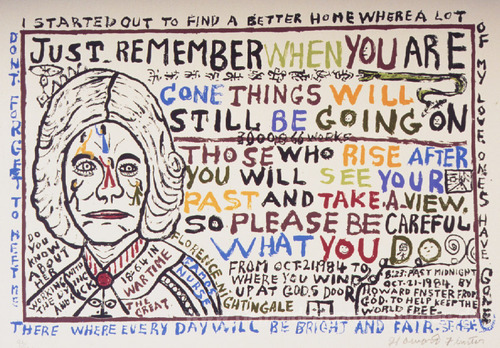 I STARTED OUT TO FIND A BETTER HOME WHERE A LOT
OF MY LOVE ONES HAVE GONE
DONT FORGET TO MEET ME
THERE WHERE EVERY DAY WILL BE BRIGHT AND FAIR.
JUST REMEMBER WHEN YOU ARE
GONE THINGS WILL
STILL BE GOING ON
3000 WORKS
THOSE WHO RISE AFTER
YOU WILL SEE YOUR
PAST AND TAKE A VIEW.
SO PLEASE BE CAREFUL
WHAT YOU DO
FROM OCT-21-1984 TO
WHERE YOU WIND
UP AT GODS DOOR
8:23: PAST MIDNIGHT
OCT-21-1984. BY
HOWARD FNSTER FROM
GOD. TO HELP KEEP THE
WORLD FREE.
DO
YOU
KNOW
ABOUT
HER
WORKING AMID
THE
AND SICK
WAR TIME
THE
GREAT
FLORENCE
NIGHTINGALE
NURSE